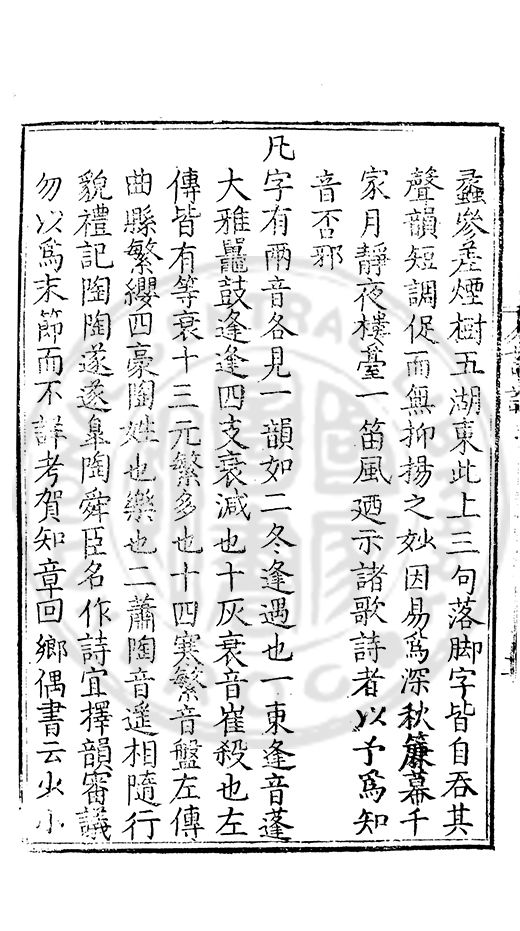 蠡參差煙樹五湖東此上三句落脚字皆自吞其
聲韻短調促而無抑揚之妙因易爲深秋簾幕千
家月靜夜樓臺一笛風廼示諸歌詩者以予爲知
音否邪
凡字有兩音各見一韻如二冬逢遇也一東逢音蓬
大雅鼉鼓逢逢四支衰減也十灰衰音崔殺也左
傳皆有等衰十三元繁多也十四寒繁音盤左傳
曲縣繁纓四豪陶姓也樂也二蕭陶音遥相隨行
貌禮記陶陶遂遂皐陶舜臣名作詩宜擇韻審議
勿以爲末節而不詳考賀知章回鄉偶書云少小